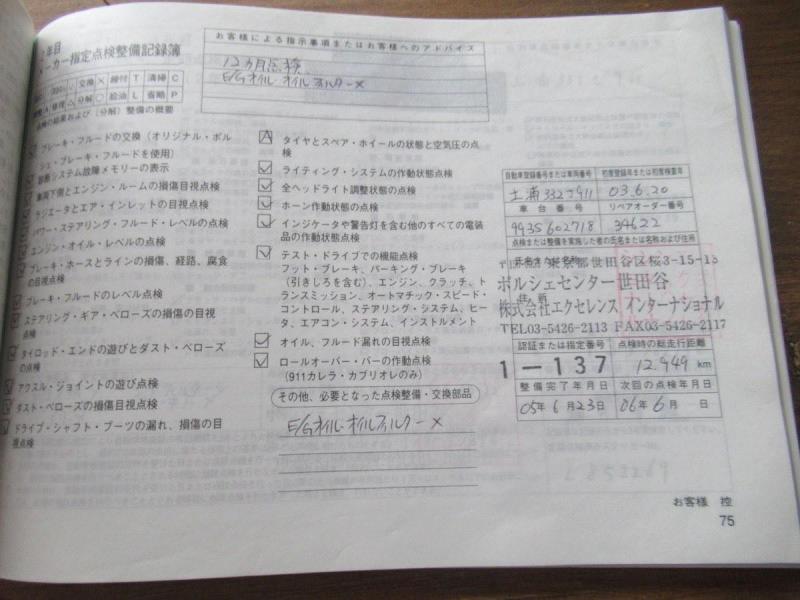 年目
メーカー指定点検整備記録簿
交換 × 締付 T 清掃 C
調整 A 修理 △ 分解 ○ 給油 L 省略 P
点検の結果および(分解)整備の概要
ブレーキ・フルードの交換(オリジナル・ポルシェ・ブレーキ・フルードを使用)
診断システム故障メモリーの表示
車両下側とエンジン・ルームの損傷目視点検
ラジエータとエア・インレットの目視点検
パワー・ステアリング・フルード・レベルの点検
エンジン・オイル・レベルの点検
ブレーキ・ホースとラインの損傷、経路、腐食
の目視点検
ブレーキ・フルードのレベル点検
ステアリング・ギア・ベローズの損傷の目視
点検
タイロッド・エンドの遊びとダスト・ベローズ
の点検
アクスル・ジョイントの遊び点検
ダスト・ベローズの損傷目視点検
ドライブ・シャフト・ブーツの漏れ、損傷の目
視点検
お客様による指示事項またはお客様へのアドバイス
12ヵ月点検
E/Gオイル・オイルフィルター×
A タイヤとスペア・ホイールの状態と空気圧の点
検
ライティング・システムの作動状態点検
全ヘッドライト調整状態の点検
ホーン作動状態の点検
インジケータや警告灯を含む他のすべての電装
品の作動状態点検
テスト・ドライブでの機能点検
フット・ブレーキ、パーキング・ブレーキ
(引きしろを含む)、エンジン、クラッチ、ト
ランスミッション、オートマチック・スピード・
コントロール、ステアリング・システム、ヒー
タ、エアコン・システム、インストルメント
オイル、フルード漏れの目視点検
ロールオーバー・バーの作動点検
(911カレラ・カブリオレのみ)
その他、必要となった点検整備・交換部品
E/Gオイル・オイルフィルター×
自動車登録番号または車両番号 初度登録年または初度検査年
土浦 332 03.6.20
車台番号 リペアオーダー番号
9935602718 34622
点検または整備を実施した者の氏名または名称および住所
東京都世田谷区桜3-15-13
ポルシェセンター世田谷
株式会社エクセレンス インターナショナル
TEL03-5426-2113 FAX03-5426-2117
認証または指定番号 点検時の総走行距離
1-137 12,949 km
整備完了年月日 次回の点検年月日
05年6月23日 06年6月 日
お客様 控
75